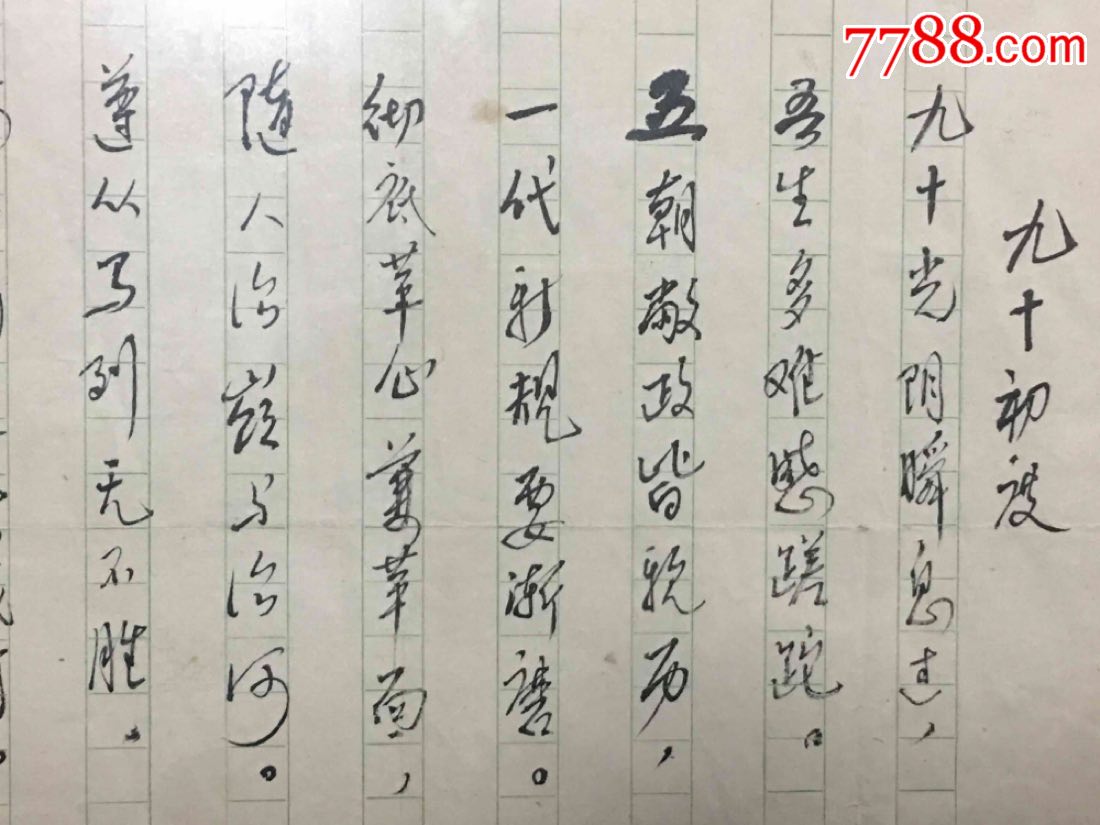 7788.com
九十初度
九十光阴瞬息过，
吾生多难蹉跎。
五朝敝政皆亲历，
一代新规要渐磨。
彻底革心兼革面，
随人治岭与治河。
遵从马列无不胜。